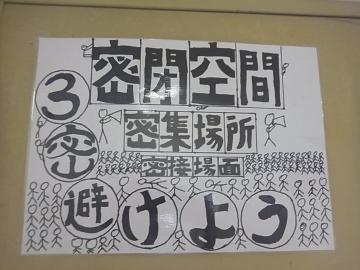 密閉空間
3密
密集場所
密接場面
避けよう